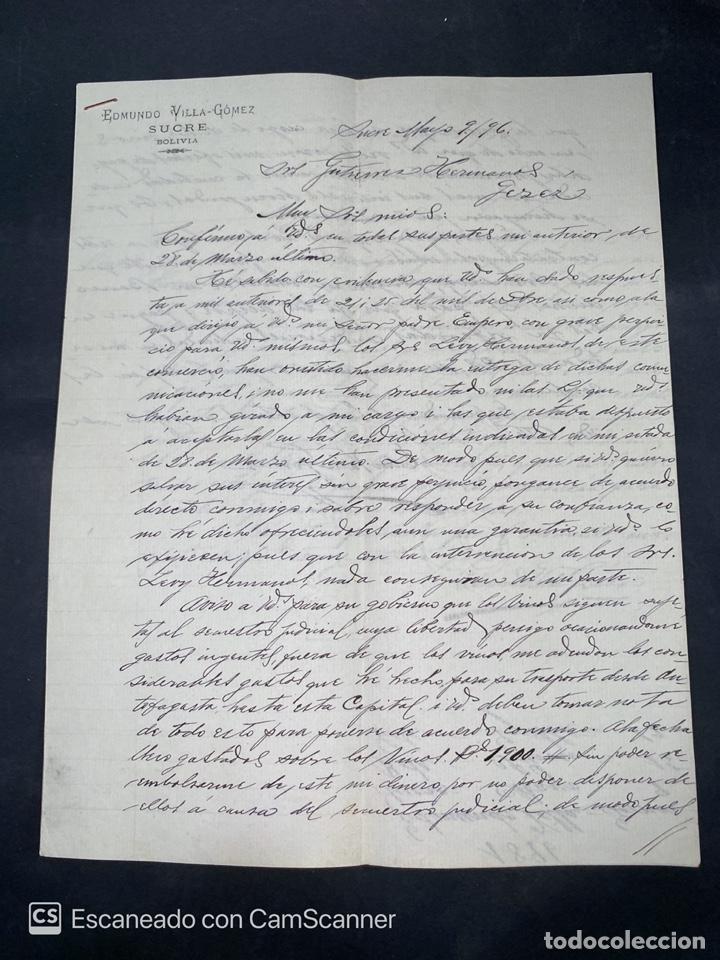 EDMUNDO VILLA-GÓMEZ
SUCRE
BOLIVIA
Sucre Mayo 9/96.
Srs Gutierrez Hermanos
Gerez
Muy Srs mios:
Confirmo á Uds en todas sus partes mi anterior de
28 de Marzo último.
Hé sabido con que Uds. han dado respues
ta, a mis anteriores de 21 i 25 del mes de asi como, a la
que dirijió á Uds. mi Señor padre Empero, con grave perjui
cio para Uds. mismos, los Srs Levy Hermanos, de este
comercio, han omitido hacerme la entrega de dichas comu
nicaciones, i no me han presentado ni las que Uds.
habian girado a mi cargo i las que estaba dispuesto
a aceptarlas en las condiciones indicadas en mi citada
de 28 de Marzo ultimo. De modo pues que si Uds. quieren
salvar sus interes sin grave perjuicio, ponganse de acuerdo
directo conmigo i sabre responder a su confianza, co
mo hé dicho ofreciendoles, aun una garantia, si Uds. lo
exijiesen; pues que con la intervencion de los Srs.
Levy Hermanos, nada conseguiran de mi parte.
Aviso a Uds para su gobierno que los Vinos siguen suje
tos al secuestro judicial, cuya libertad persigo ocacionandome
gastos injentes, fuera de que los vinos me adeudan los con
siderables gastos que hé hecho para su trasporte desde An
tofagasta, hasta esta Capital, i Uds. deben tomar nota
de todo esto para ponerse de acuerdo conmigo. A la fecha
llevo gastados sobre los Vinos. Bs 1,900. # Sin poder re
embolsarme de este mi dinero por no poder disponer de
ellos á causa del secuestro judicial; de modo pues
CS Escaneado con CamScanner
todocoleccion